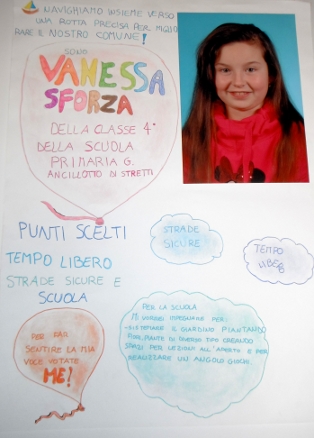 NAVIGHIAMO INSIEME VERSO
UNA ROTTA PRECISA PER MIGLIO
RARE IL NOSTRO COMUNE!
SONO
VANESSA
SFORZA
DELLA CLASSE 4ª
DELLA SCUOLA
PRIMARIA G.
ANCILLOTTO DI STRETTI
PUNTI SCELTI
TEMPO LIBERO
STRADE SICURE E
SCUOLA
STRADE
SICURE
TEMPO
LIBERO
PER FAR
SENTIRE LA MIA
VOCE VOTATE
ME!
PER LA SCUOLA
MI VORREI IMPEGNARE PER
SISTEMARE IL GIARDINO PIANTANDO
FIORI, PIANTE DI DIVERSO TIPO CREANDO
SPAZI PER LEZIONI ALL'APERTO E PER
REALIZZARE UN ANGOLO GIOCHI.